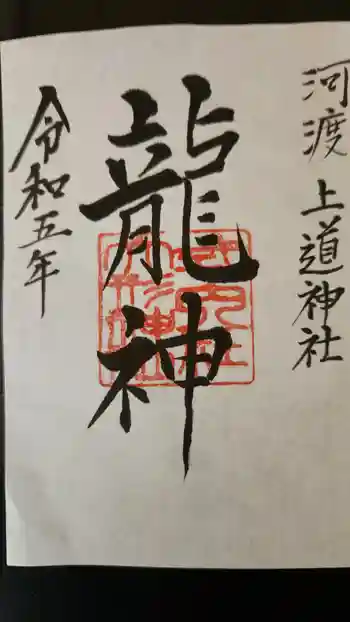 河渡 上道神社
龍神
令和五年